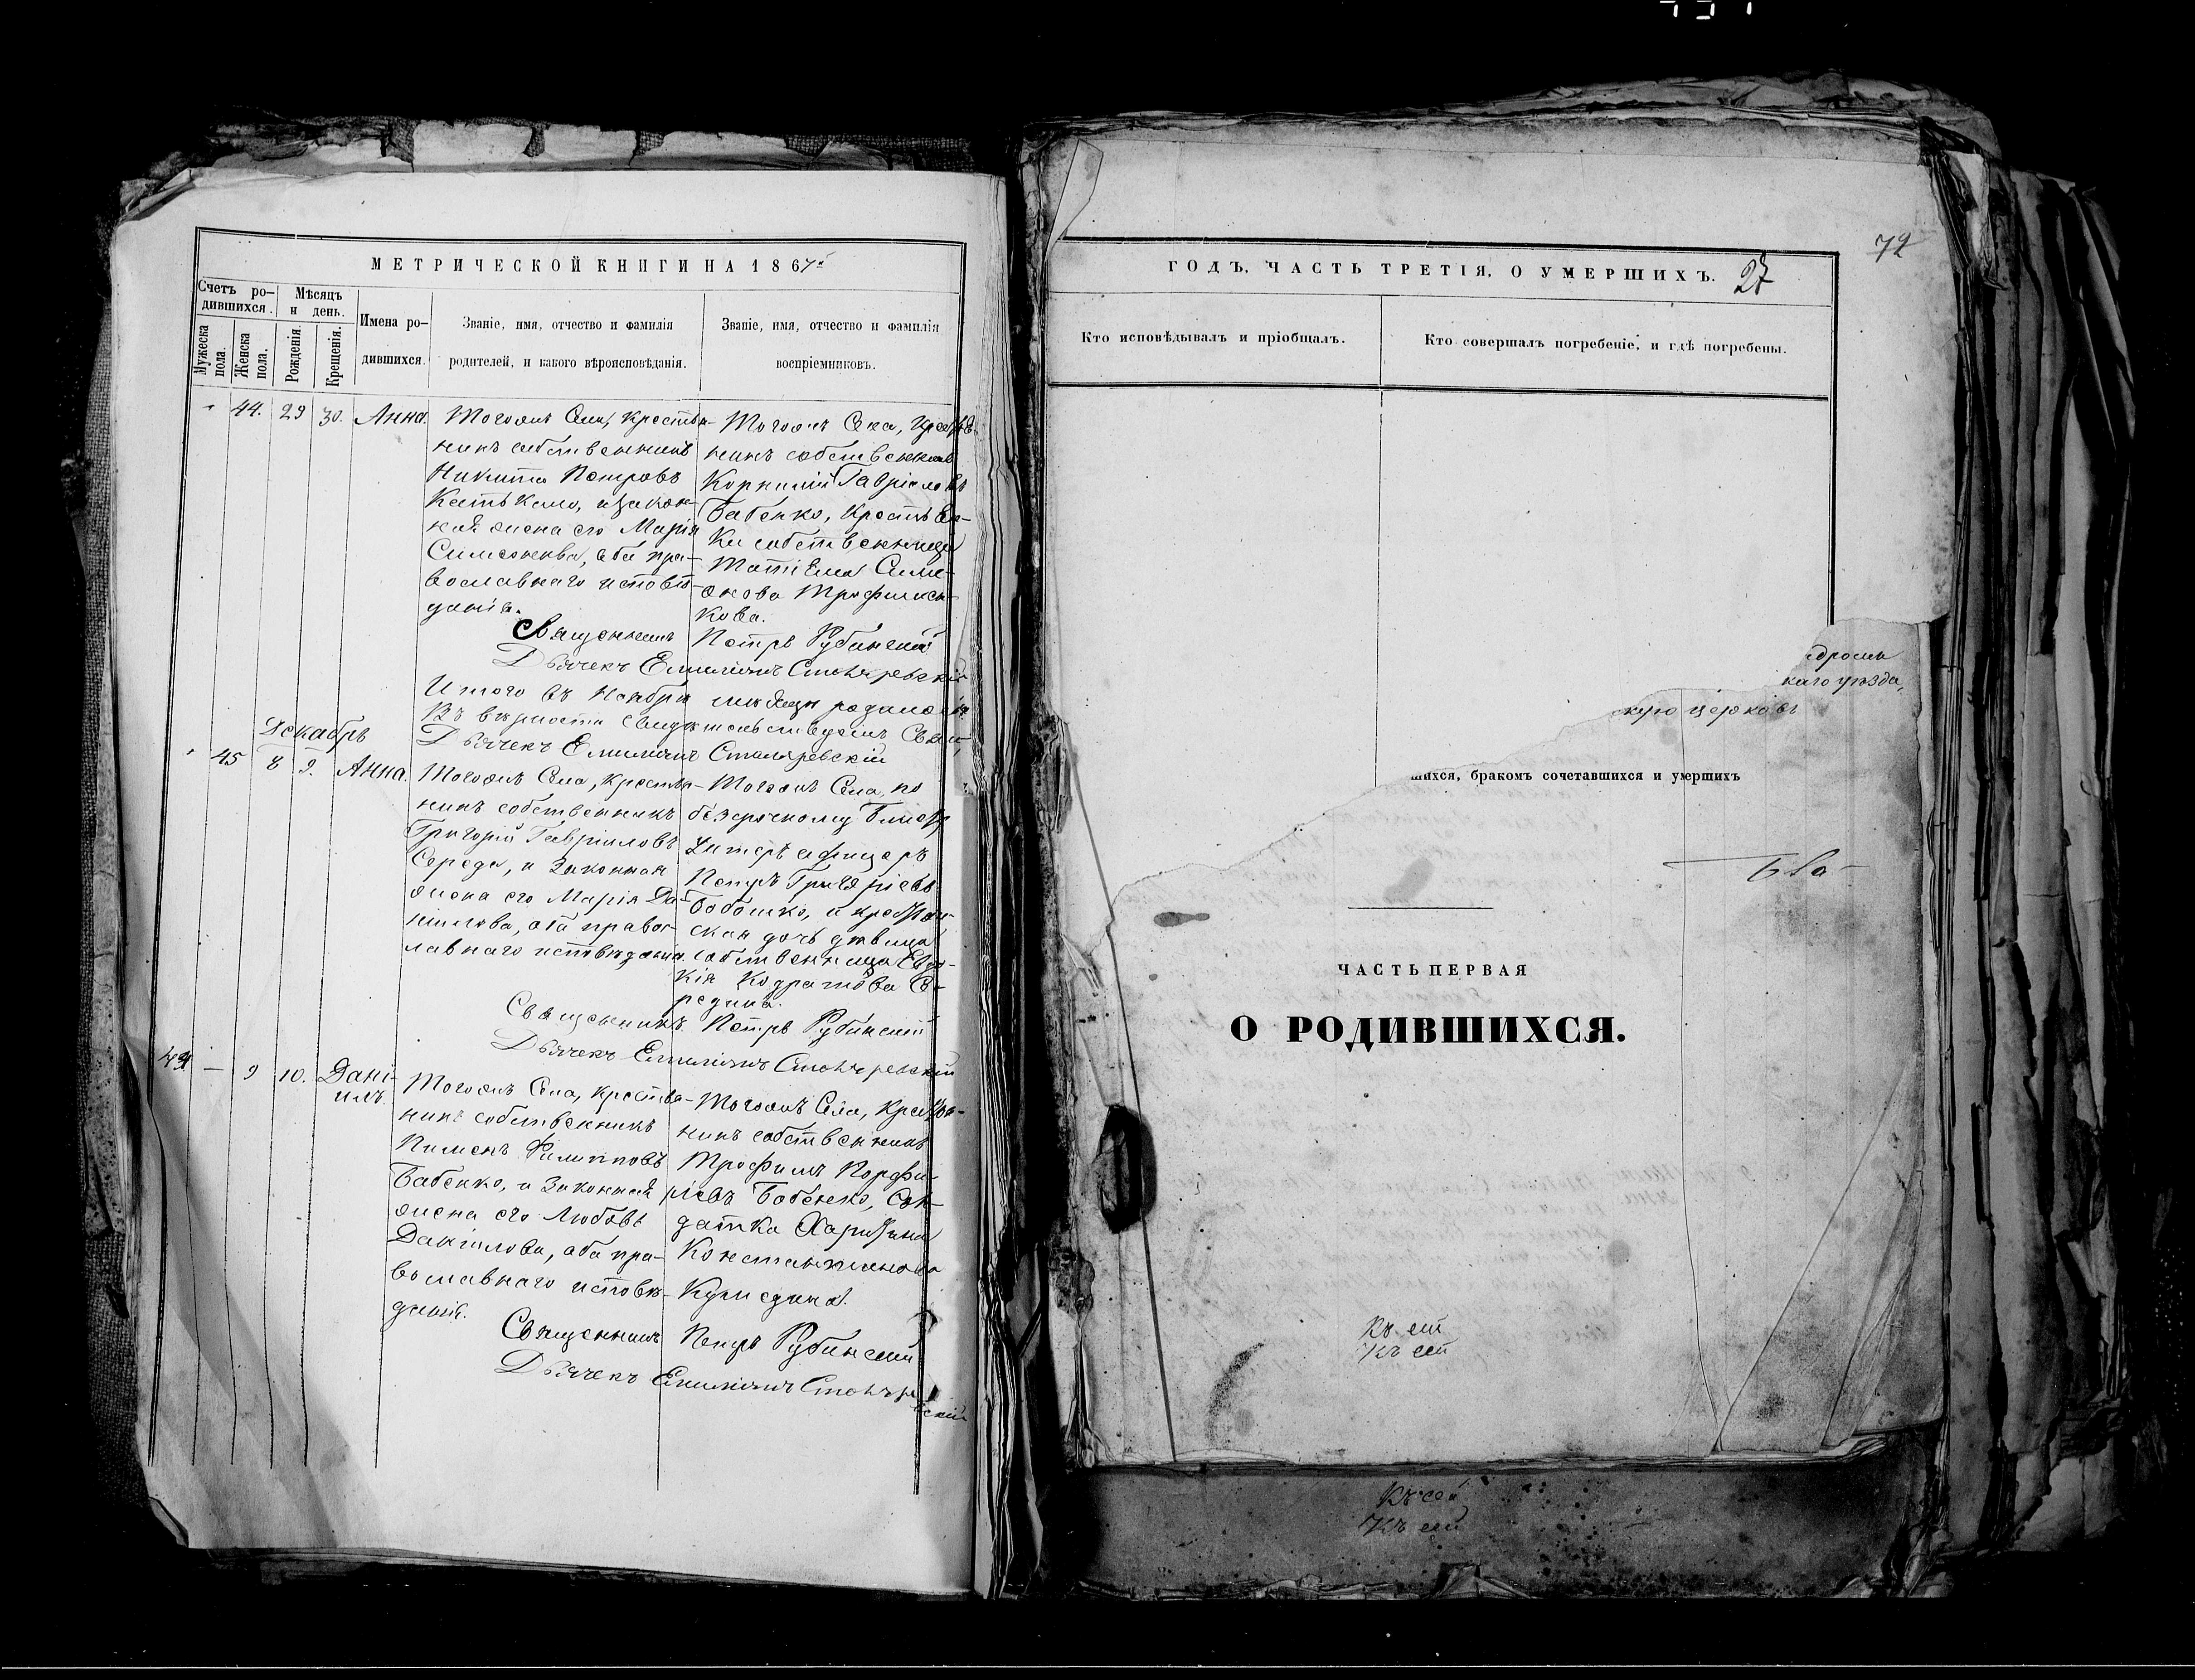 МЕТРИЧЕСКОЙ КНИГИ НА 1867й
Счетъ ро-
дившихся.
Мѣсяцъ
и день.
Мужеска
пола.
Женска
пола.
Рожденія.
Крещенія.
Имена ро-
дившихся.
Званіе, имя, отчество и фамилія
родителей, и какого вѣроисповѣданія.
Званіе, имя, отчество и фамилія
воспріемниковъ.
44. 29 30. Анна.
Тогожъ Села, крестья-
нинъ собственникъ
Никита Петровъ
и закон-
ная жена его Марія
Симеонова, оба пра-
вославнаго исповѣ-
данія.
Тогожъ Села, крестья-
нинъ собственникъ
Корнилій Гавриловъ
Бабенко, крестьян-
ки собственницы
Татіана Симе-
онова Трофимен-
кова.
Священникъ Петръ Рубинскій
Дьячекъ Емиліанъ Столяревскій
Итого въ Ноябрѣ мѣсяцѣ родилось
Въ вѣрности свидѣтельствуемъ Свящ.
Дьячекъ Емиліанъ Столяревскій
Декабрь
45 8 9. Анна.
Тогожъ Села, крестья-
нинъ собственникъ
Григорій Гавриловъ
Середа, и Законная
жена его Марія Да-
ніилова, оба правос-
лавнаго исповѣданія.
Тогожъ Села, по
безсрочному билету
Унтеръ офицеръ
Петръ Григоріевъ
Бабенко, и крестьян-
ская дочь дѣвица
собственница Евдо-
кія Кодратова Се-
редина.
Священникъ Петръ Рубинскій
Дьячекъ Емиліанъ Столяревскій
44 — 9 10. Дані-
илъ.
Тогожъ Села, крестья-
нинъ собственникъ
Пименъ Филиповъ
Бабенко, и Законная
жена его Любовь
Даніилова, оба пра-
вославнаго исповѣ-
данія.
Тогожъ Села, крестья-
нинъ собственникъ
Трофимъ Порфи-
ріевъ Бабенко, Сол-
датка Харитина
Константинова
Священникъ Петръ Рубинскій
Дьячекъ Емиліанъ Столярев-
скій
72
ГОДЪ, ЧАСТЬ ТРЕТІЯ, О УМЕРШИХЪ. 27
Кто исповѣдывалъ и пріобщалъ.
Кто совершалъ погребеніе, и гдѣ погребены.
каго уѣзда,
церковь
шихся, бракомъ сочетавшихся и умершихъ
ЧАСТЬ ПЕРВАЯ
О РОДИВШИХСЯ.